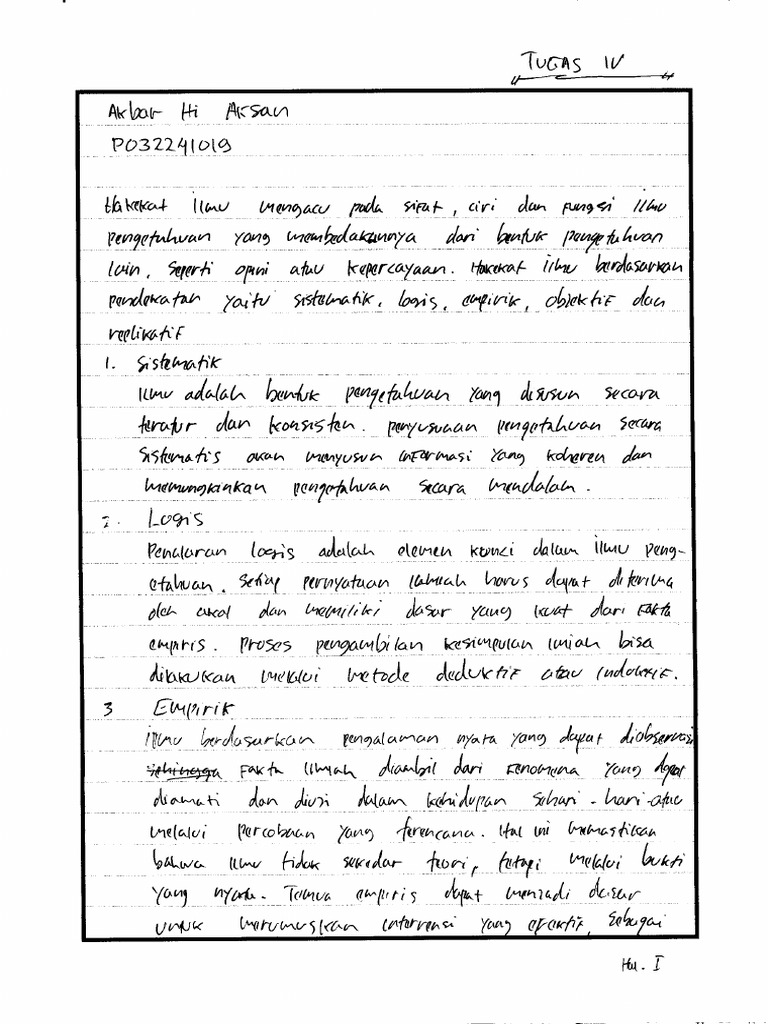 TUGAS IV
Akbar Hi Aksan
P032241019
Hakekat ilmu mengacu pada sifat, ciri dan fungsi ilmu
pengetahuan yang membedakannya dari bentuk pengetahuan
lain, seperti opini atau kepercayaan. Hakekat ilmu berdasarkan
pendekatan yaitu sistematik, logis, empirik, objektif dan
replikatif
1. Sistematik
Ilmu adalah bentuk pengetahuan yang disusun secara
teratur dan konsisten. penyusunan pengetahuan secara
sistematis akan menyusun informasi yang koheren dan
memungkinkan pengetahuan secara mendalam.
2. Logis
Penalaran logis adalah elemen kunci dalam ilmu peng-
etahuan. Setiap pernyataan ilmiah harus dapat diterima
oleh akal dan memiliki dasar yang kuat dari fakta
empiris. Proses pengambilan kesimpulan ilmiah bisa
dilakukan melalui metode deduktif atau induktif.
3 Empirik
ilmu berdasarkan pengalaman nyata yang dapat diobservasi
sehingga fakta ilmiah diambil dari fenomena yang dapat
diamati dan diuji dalam kehidupan sehari-hari atau
melalui percobaan yang terencana. Hal ini memastikan
bahwa ilmu tidak sekedar teori, tetapi melalui bukti
yang nyata. Temua empiris dapat menjadi dasar
untuk merumuskan intervensi yang efektif, sebagai
Hal. I